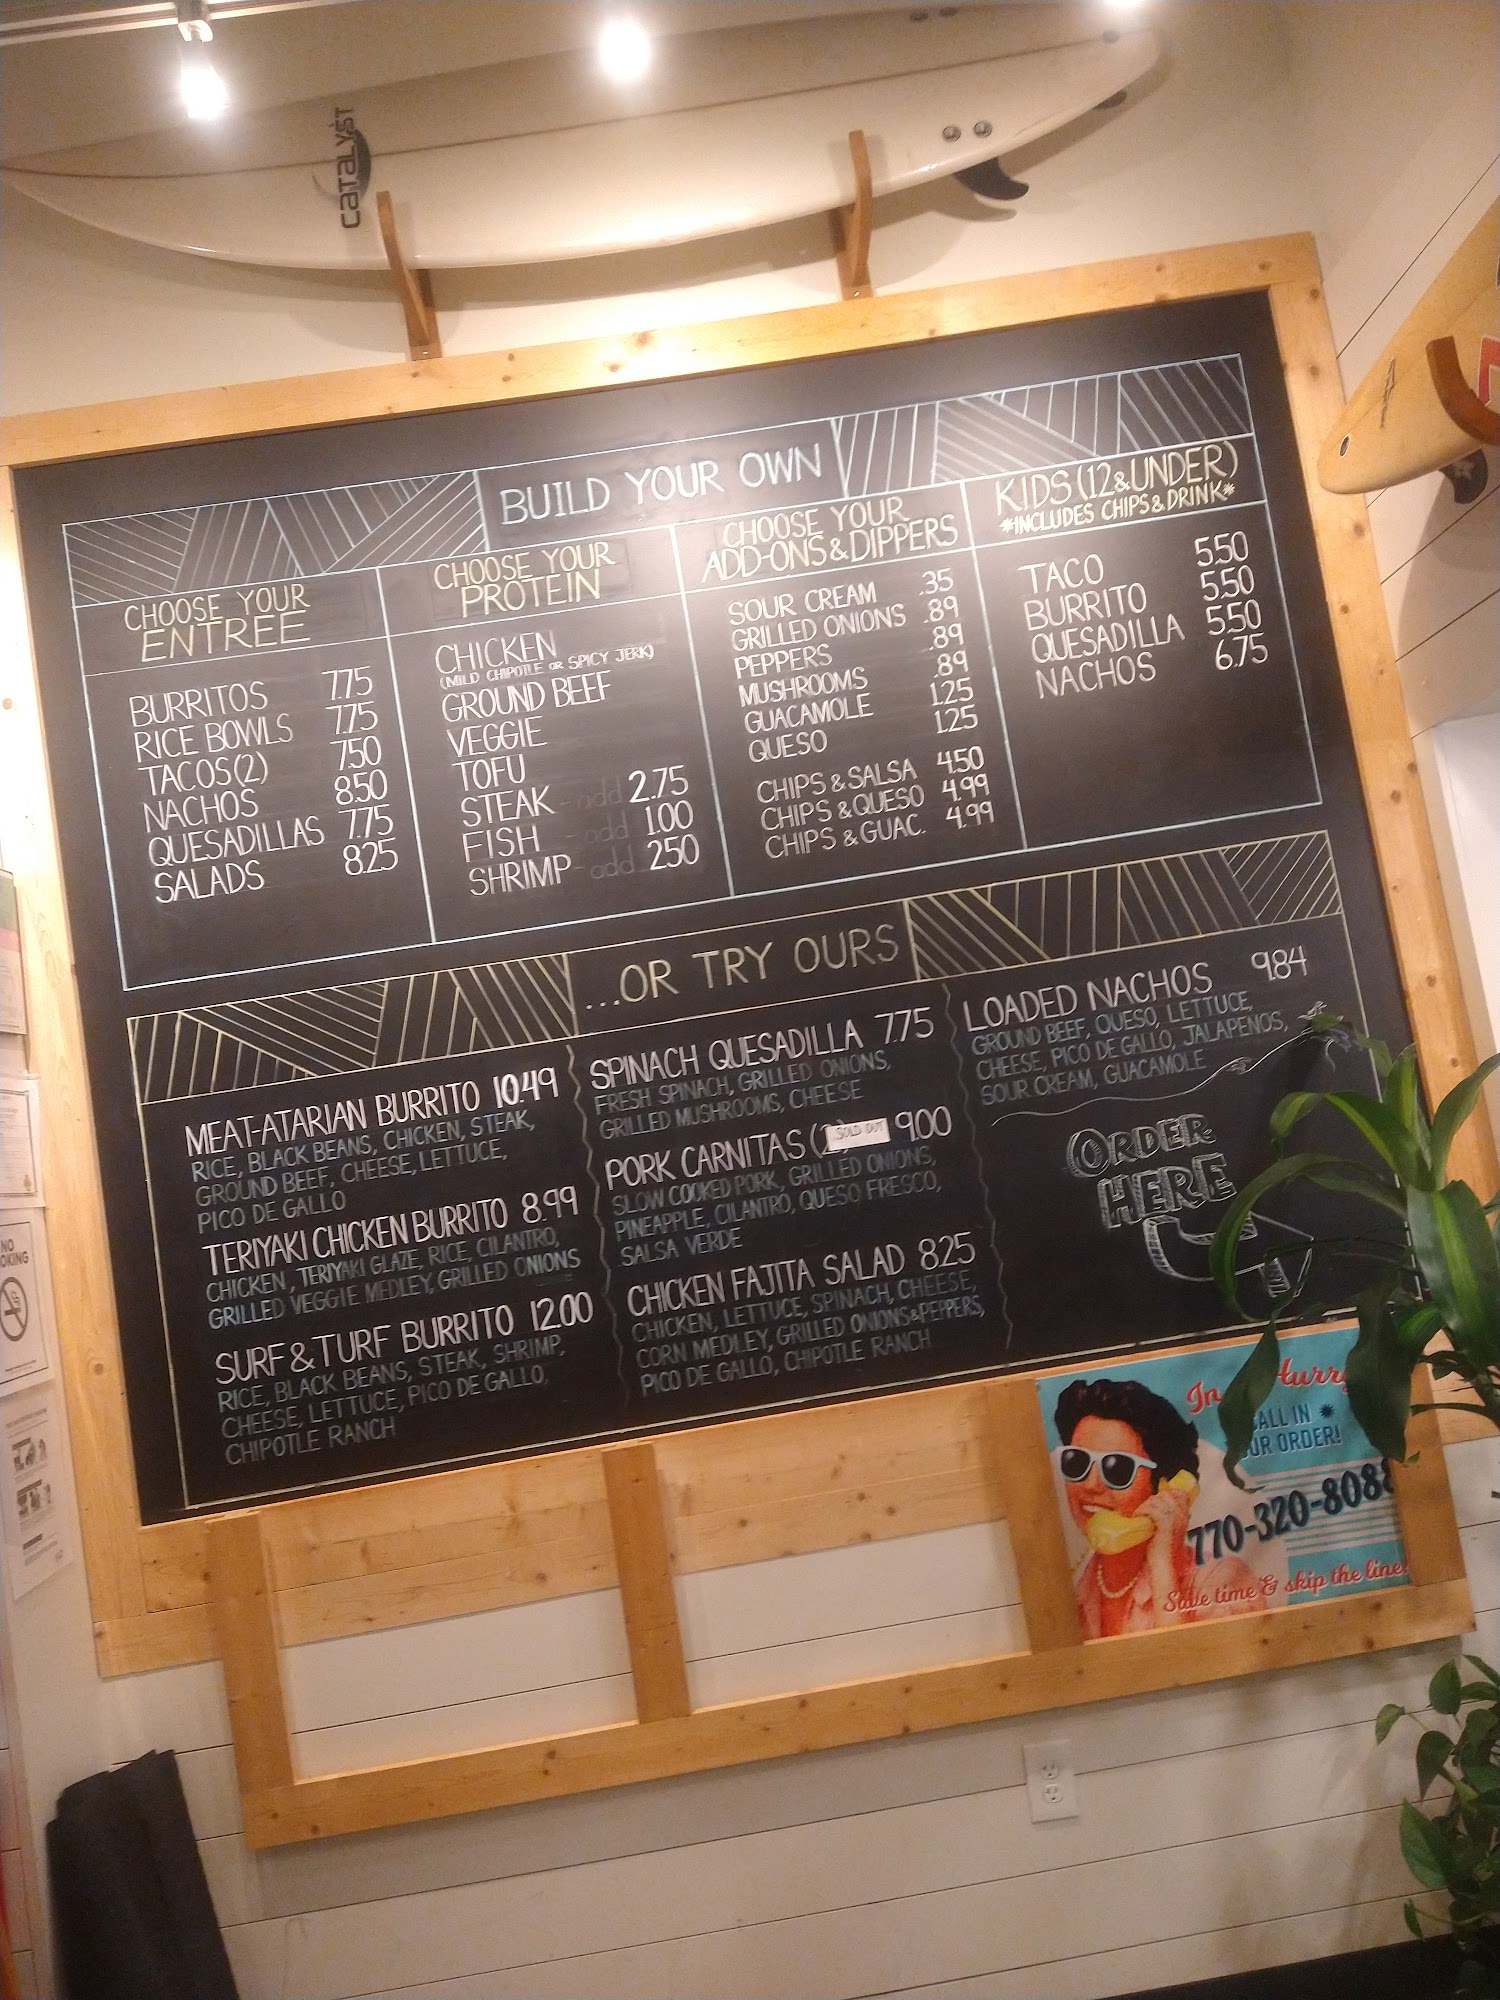 CATALYST
BUILD YOUR OWN
CHOOSE YOUR
ENTREE
BURRITOS 7.75
RICE BOWLS 7.75
TACOS (2) 7.50
NACHOS 8.50
QUESADILLAS 7.75
SALADS 8.25
CHOOSE YOUR
PROTEIN
CHICKEN
(MILD CHIPOTLE OR SPICY JERK)
GROUND BEEF
VEGGIE
TOFU
STEAK - add 2.75
FISH - add 1.00
SHRIMP - add 2.50
CHOOSE YOUR
ADD-ONS & DIPPERS
SOUR CREAM .35
GRILLED ONIONS .89
PEPPERS .89
MUSHROOMS .89
GUACAMOLE 1.25
QUESO 1.25
CHIPS & SALSA 4.50
CHIPS & QUESO 4.99
CHIPS & GUAC. 4.99
KIDS (12 & UNDER)
*INCLUDES CHIPS & DRINK*
TACO 5.50
BURRITO 5.50
QUESADILLA 5.50
NACHOS 6.75
...OR TRY OURS
MEAT-ATARIAN BURRITO 10.49
RICE, BLACK BEANS, CHICKEN, STEAK,
GROUND BEEF, CHEESE, LETTUCE,
PICO DE GALLO
TERIYAKI CHICKEN BURRITO 8.99
CHICKEN, TERIYAKI GLAZE, RICE, CILANTRO,
GRILLED VEGGIE MEDLEY, GRILLED ONIONS
SURF & TURF BURRITO 12.00
RICE, BLACK BEANS, STEAK, SHRIMP,
CHEESE, LETTUCE, PICO DE GALLO,
CHIPOTLE RANCH
SPINACH QUESADILLA 7.75
FRESH SPINACH, GRILLED ONIONS,
GRILLED MUSHROOMS, CHEESE
PORK CARNITAS ( SOLD OUT 9.00
SLOW COOKED PORK, GRILLED ONIONS,
PINEAPPLE, CILANTRO, QUESO FRESCO,
SALSA VERDE
CHICKEN FAJITA SALAD 8.25
CHICKEN, LETTUCE, SPINACH, CHEESE,
CORN MEDLEY, GRILLED ONIONS & PEPPERS,
PICO DE GALLO, CHIPOTLE RANCH
LOADED NACHOS 9.84
GROUND BEEF, QUESO, LETTUCE,
CHEESE, PICO DE GALLO, JALAPENOS,
SOUR CREAM, GUACAMOLE
ORDER
HERE
In Hurry
CALL IN
OUR ORDER!
770-320-8088
Save time & skip the line!
NO
OKING